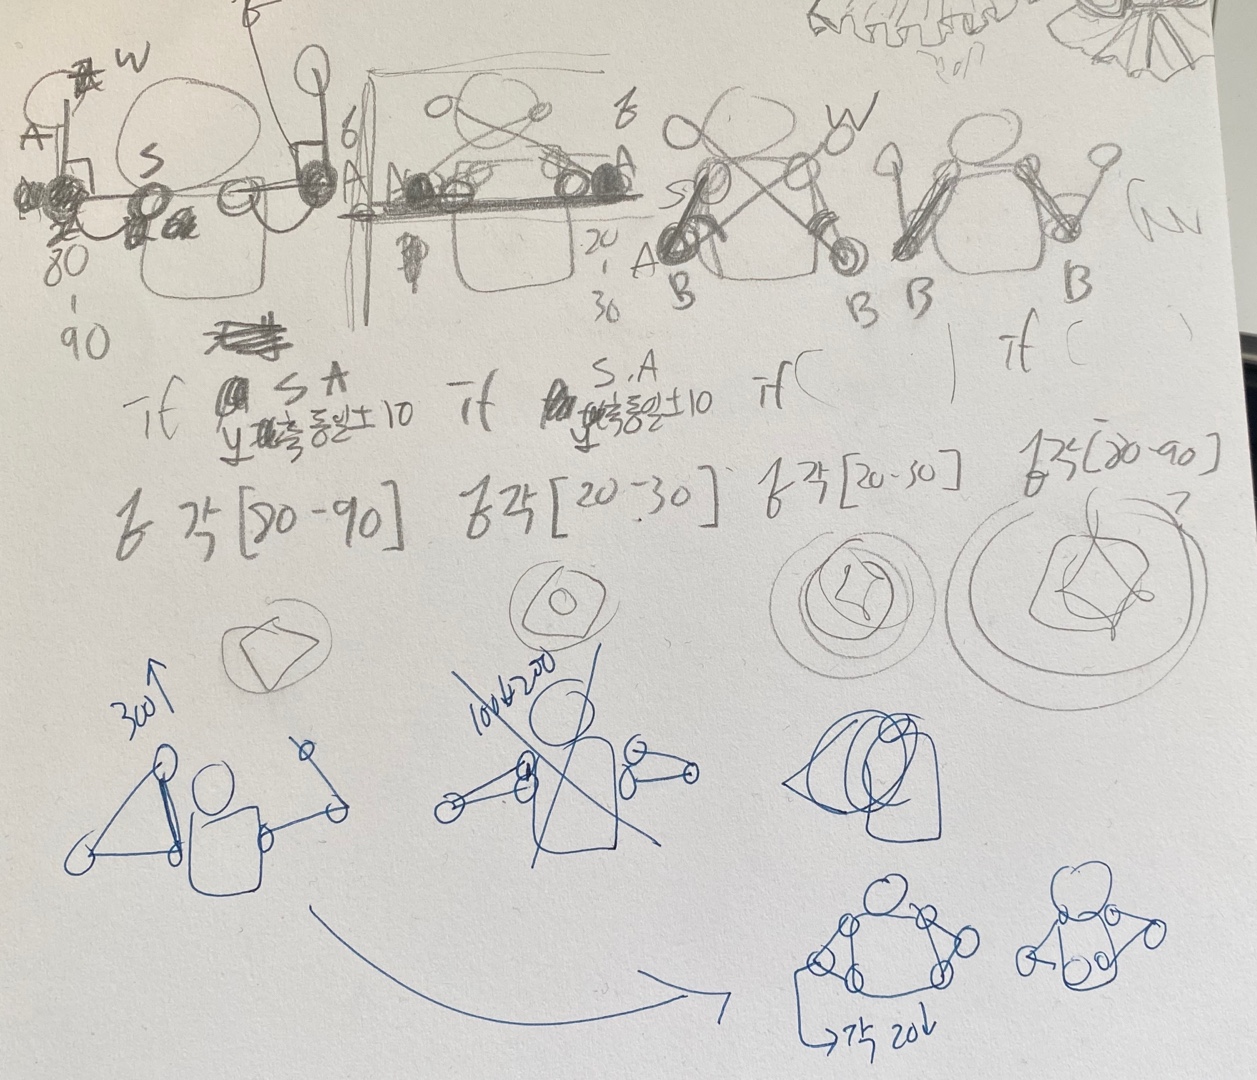 W
A
S
80
90
A
20
30
A
W
S
A
B
B
B
B
if S A
y축 동일 ±10
if S.A
y축 동일 ±10
if (
)
if ( )
각 [80-90]
각 [20-30]
각 [20-30]
각 [80-90]
?
300↑
100~200
각 20↓